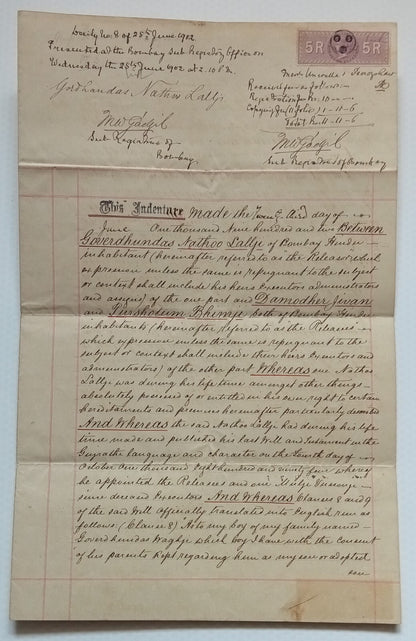 Serily No. 8 of 25th June 1902
Presented at the Bombay Sub Registry Office on
Wednesday the 25th June 1902 at 2.10 P.M.
Gordhandas Nathoo Lallji
Sub Registrar of
Bombay
5R 5R
Received fees as follows:—
Registration fee Rs. 10 —
Copying fee
Total Rs. 11-11-6
Sub Registrar of Bombay
This Indenture made the Twenty third day of
June One thousand Nine hundred and two Between
Goverdhundas Nathoo Lallji of Bombay Hindu
inhabitant (hereafter referred to as the Releasor which
expression unless the same is repugnant to the subject
or context shall include his heirs executors administrators
and assigns) of the one part and Damodher Jevan
and Purshotum Khimji both of Bombay Hindu
inhabitants (hereafter referred to as the Releasees
which expression unless the same is repugnant to the
subject or context shall include their heirs executors and
administrators) of the other part Whereas one Nathoo
Lallji was during his life time amongst other things
absolutely possessed of or entitled in his own right to certain
hereditaments and premises hereinafter particularly described
And Whereas the said Nathoo Lallji had during his life
time made and published his last Will and Testament in the
Guzrathi language and character on the Fourth day of
October One thousand Eight hundred and ninety five whereof
he appointed the Releasees and one
since deceased Executors And Whereas Clauses 8 and 9
of the said Will officially translated into English run as
follows: (Clause 8) As to my boy of my family named
Goverdhundas Waghji which boy I have with the consent
of his parents kept regarding him as my son or adopted
son